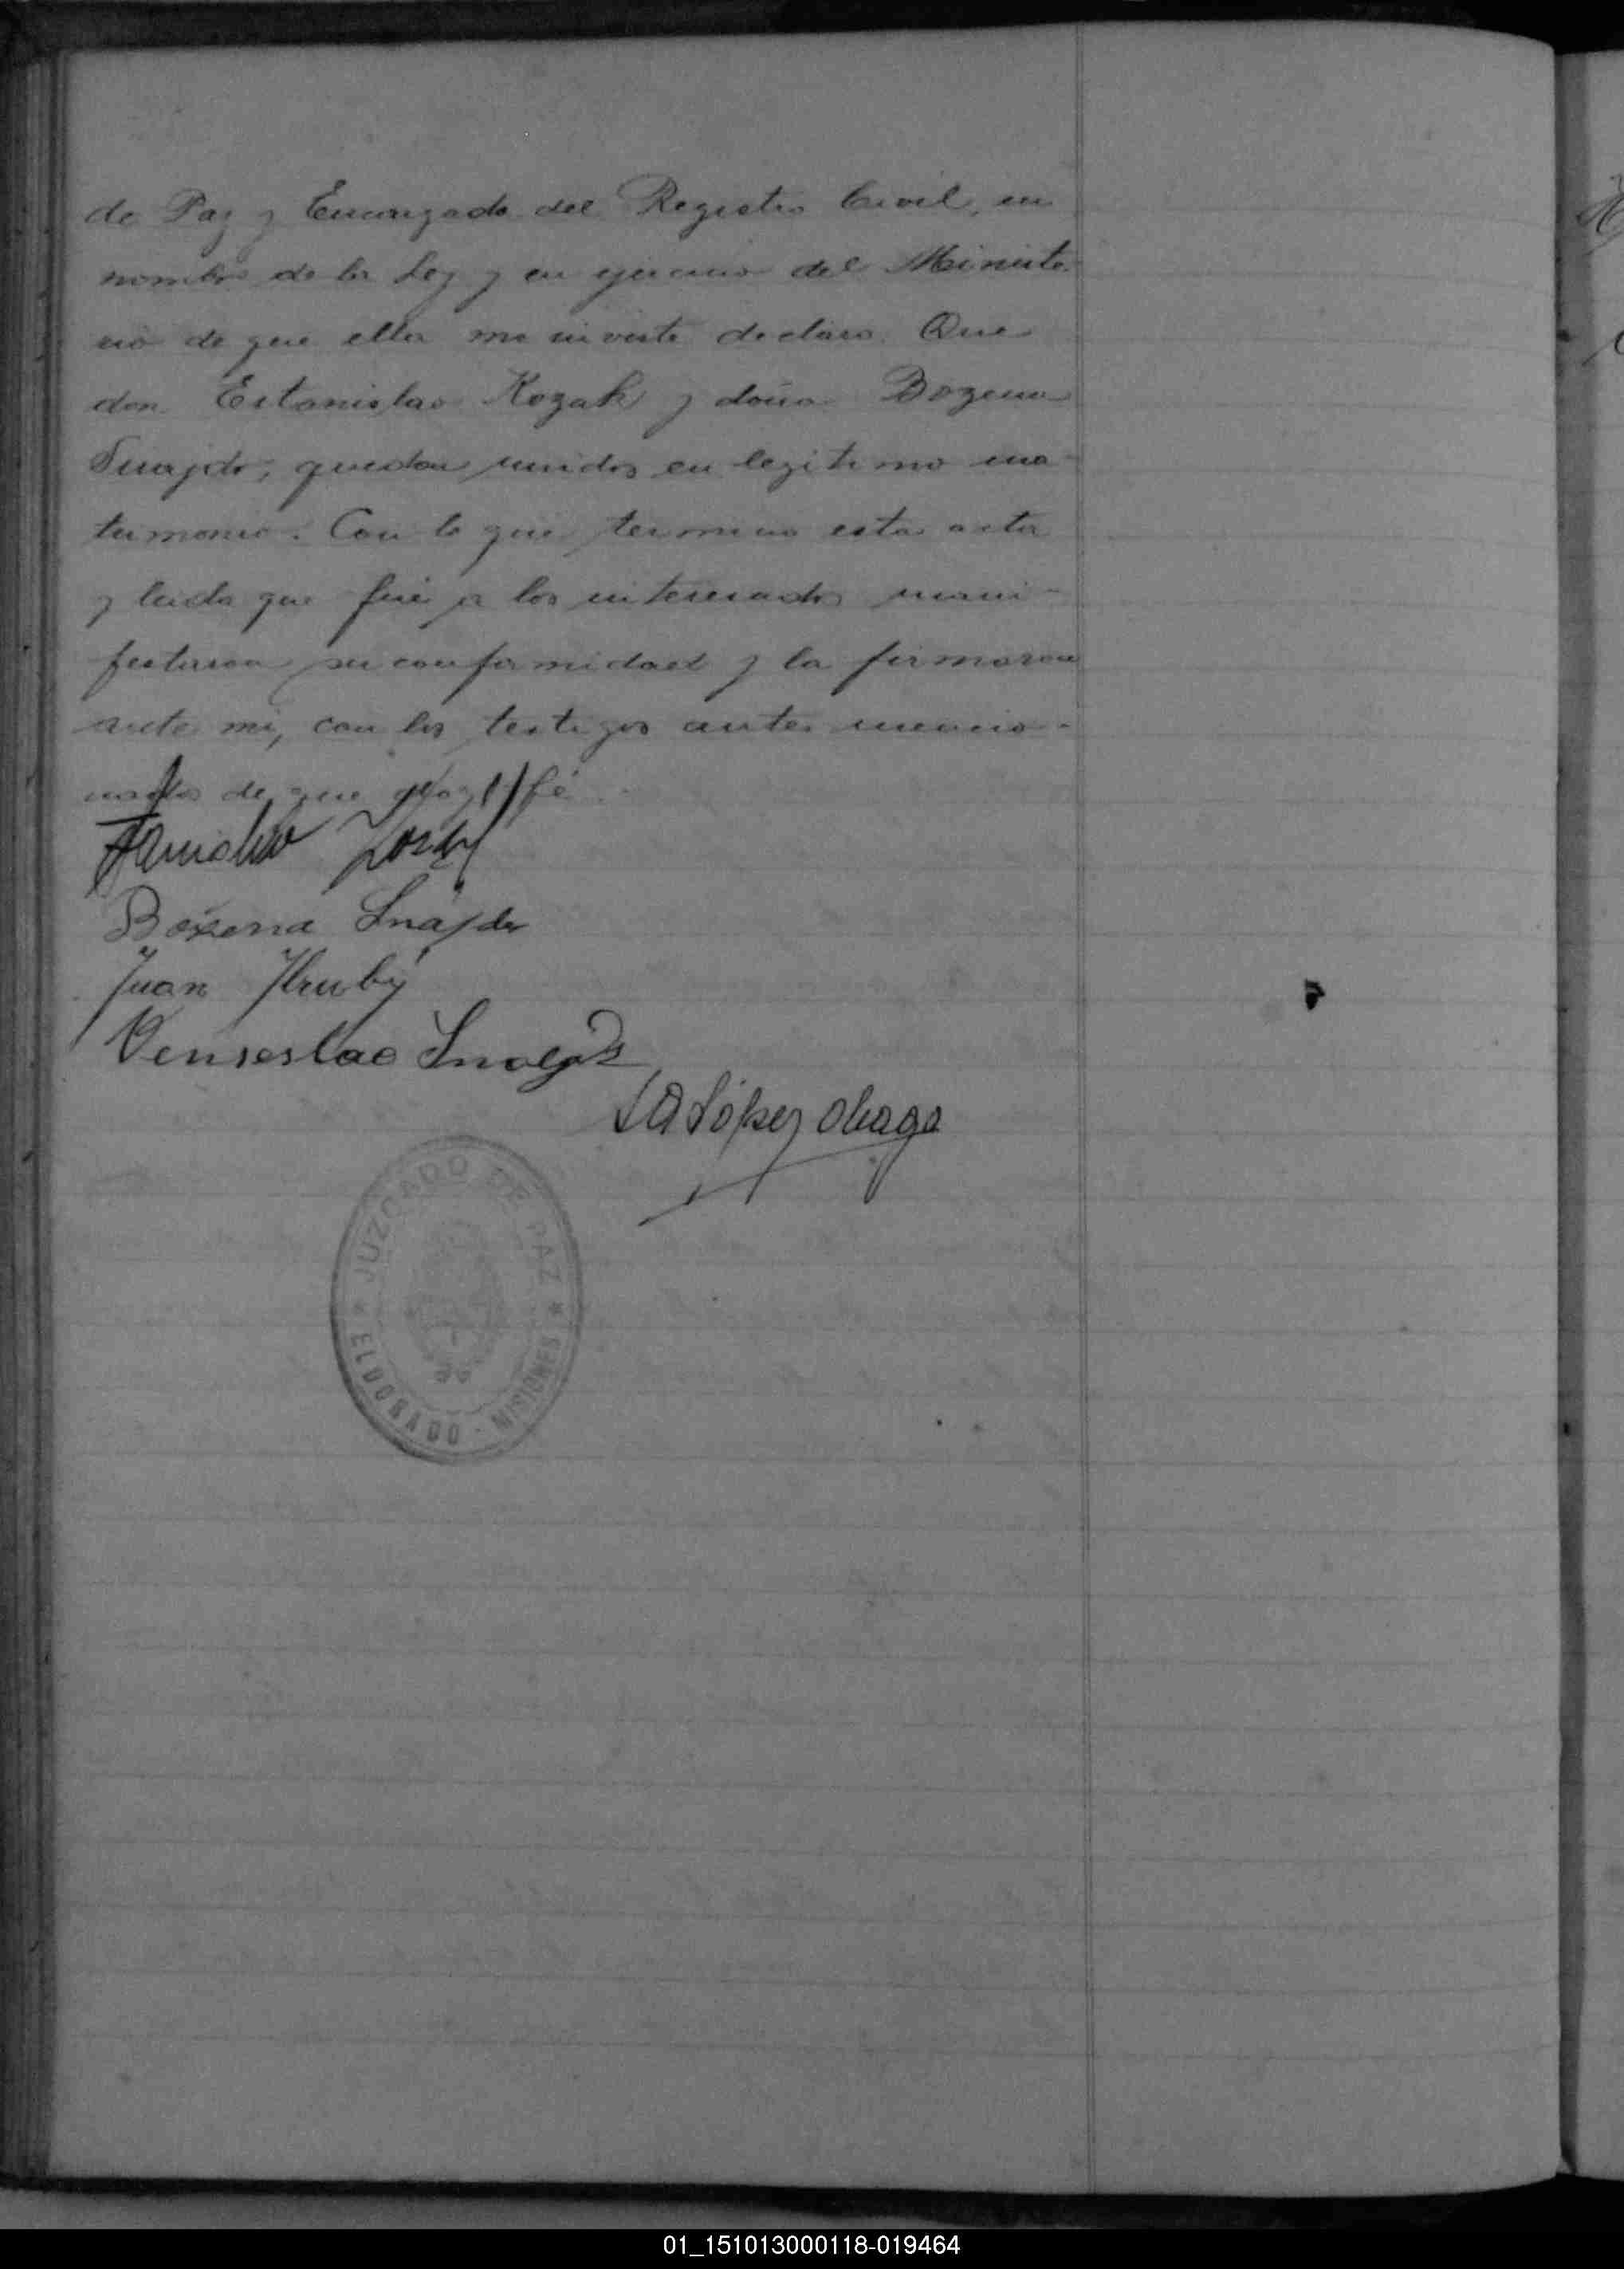 de Paz y Encargado del Registro Civil, en
nombre de la Ley y en ejercicio del Ministe-
rio de que ella me inviste declaro: Que
don Estanislao Kozak y doña Bozena
Snajdr, quedan unidos en legitimo ma-
trimonio. Con lo que termino esta acta
y leida que fué a los interesados mani-
festaron su conformidad y la firmaron
ante mi, con los testigos antes mencio-
nados de que doy fé.
Bożena Snajdr
Juan Hruby
Venseslao
López
JUZGADO DE PAZ
ELDORADO - MISIONES
01_151013000118-019464